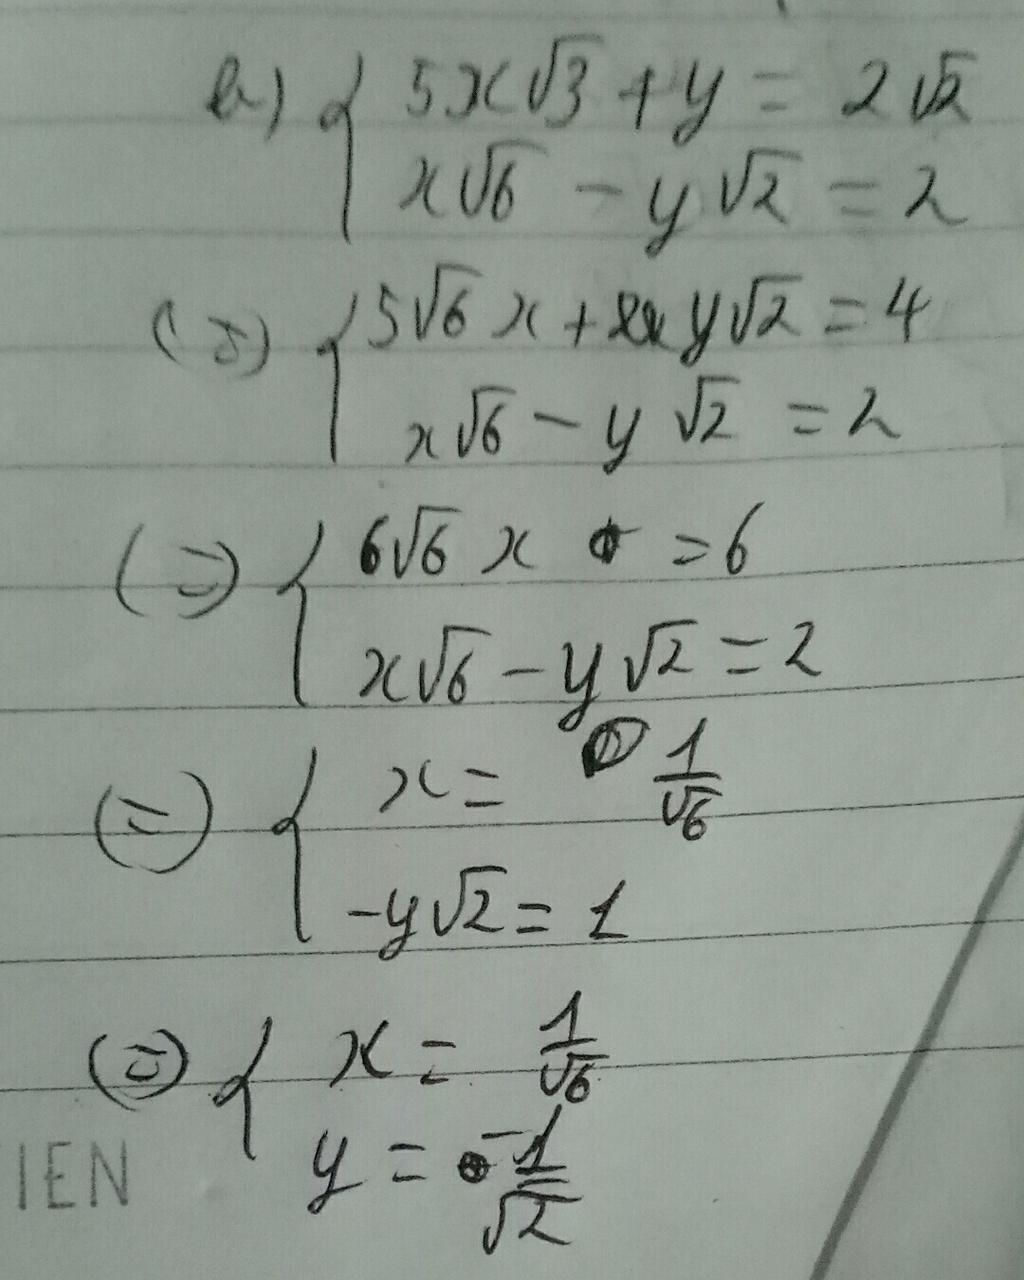 b) { 5x√3 + y = 2√2
x√6 - y√2 = 2
(=) { 5√6 x + y√2 = 4
x√6 - y√2 = 2
(=) { 6√6 x = 6
x√6 - y√2 = 2
(=) { x = 1/√6
-y√2 = 1
(=) { x = 1/√6
y = -1/√2
IEN